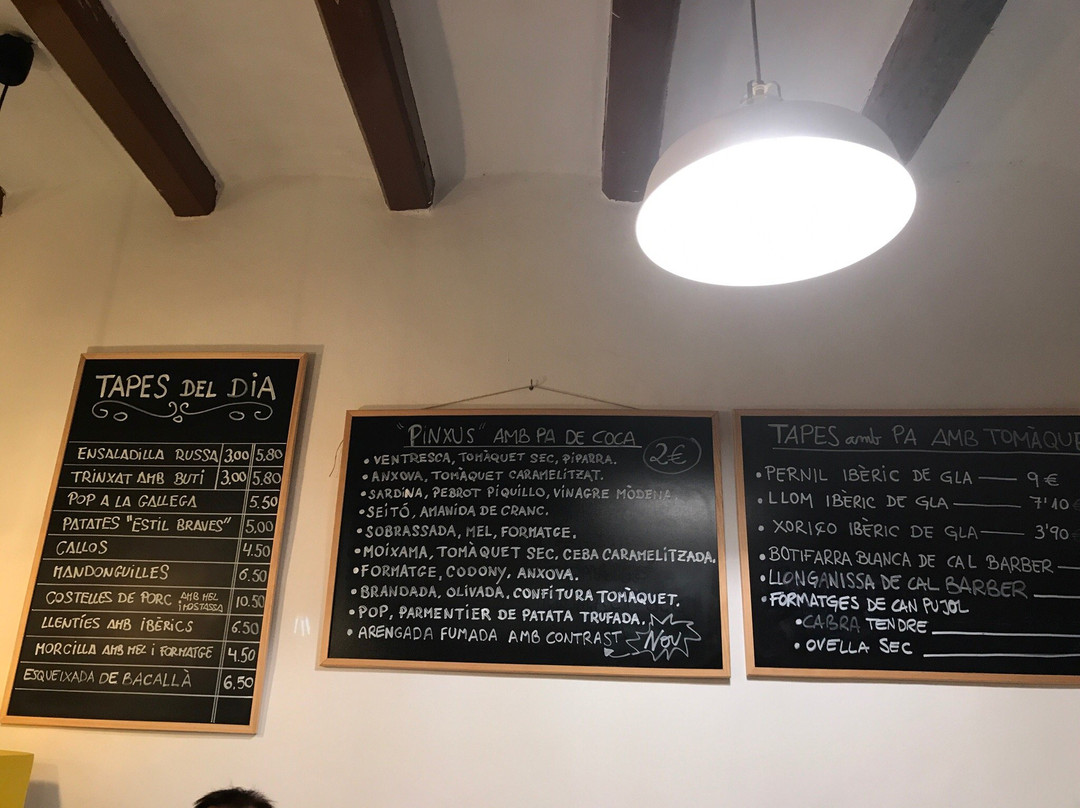 TAPES DEL DIA
ENSALADILLA RUSSA 3,00 5,80
TRINXAT AMB BUTI 3,00 5,80
POP A LA GALLEGA 5,50
PATATES "ESTIL BRAVES" 5,00
CALLOS 4.50
MANDONGUILLES 6.50
COSTELLES DE PORC AMB MEL I MOSTASSA 10.50
LLENTÍES AMB IBÈRICS 6.50
MORCILLA AMB MEL I FORMATGE 4.50
ESQUEIXADA DE BACALLÀ 6.50
"PINXUS" AMB PA DE COCA 2€
• VENTRESCA, TOMÀQUET SEC, PIPARRA.
• ANXOVA, TOMÀQUET CARAMELITZAT.
• SARDINA, PEBROT PIQUILLO, VINAGRE MÒDENA.
• SEITÓ, AMANIDA DE CRANC.
• SOBRASSADA, MEL, FORMATGE.
• MOIXAMA, TOMÀQUET SEC, CEBA CARAMELITZADA.
• FORMATGE, CODONY, ANXOVA.
• BRANDADA, OLIVADA, CONFITURA TOMÀQUET.
• POP, PARMENTIER DE PATATA TRUFADA.
• ARENGADA FUMADA AMB CONTRAST NOU
TAPES amb PA AMB TOMÀQUE
• PERNIL IBÈRIC DE GLA — 9 €
• LLOM IBÈRIC DE GLA — 7'10
• XORIÇO IBÈRIC DE GLA — 3'90
• BOTIFARRA BLANCA DE CAL BARBER
• LLONGANISSA DE CAL BARBER
• FORMATGES DE CAN PUJOL
• CABRA TENDRE
• OVELLA SEC